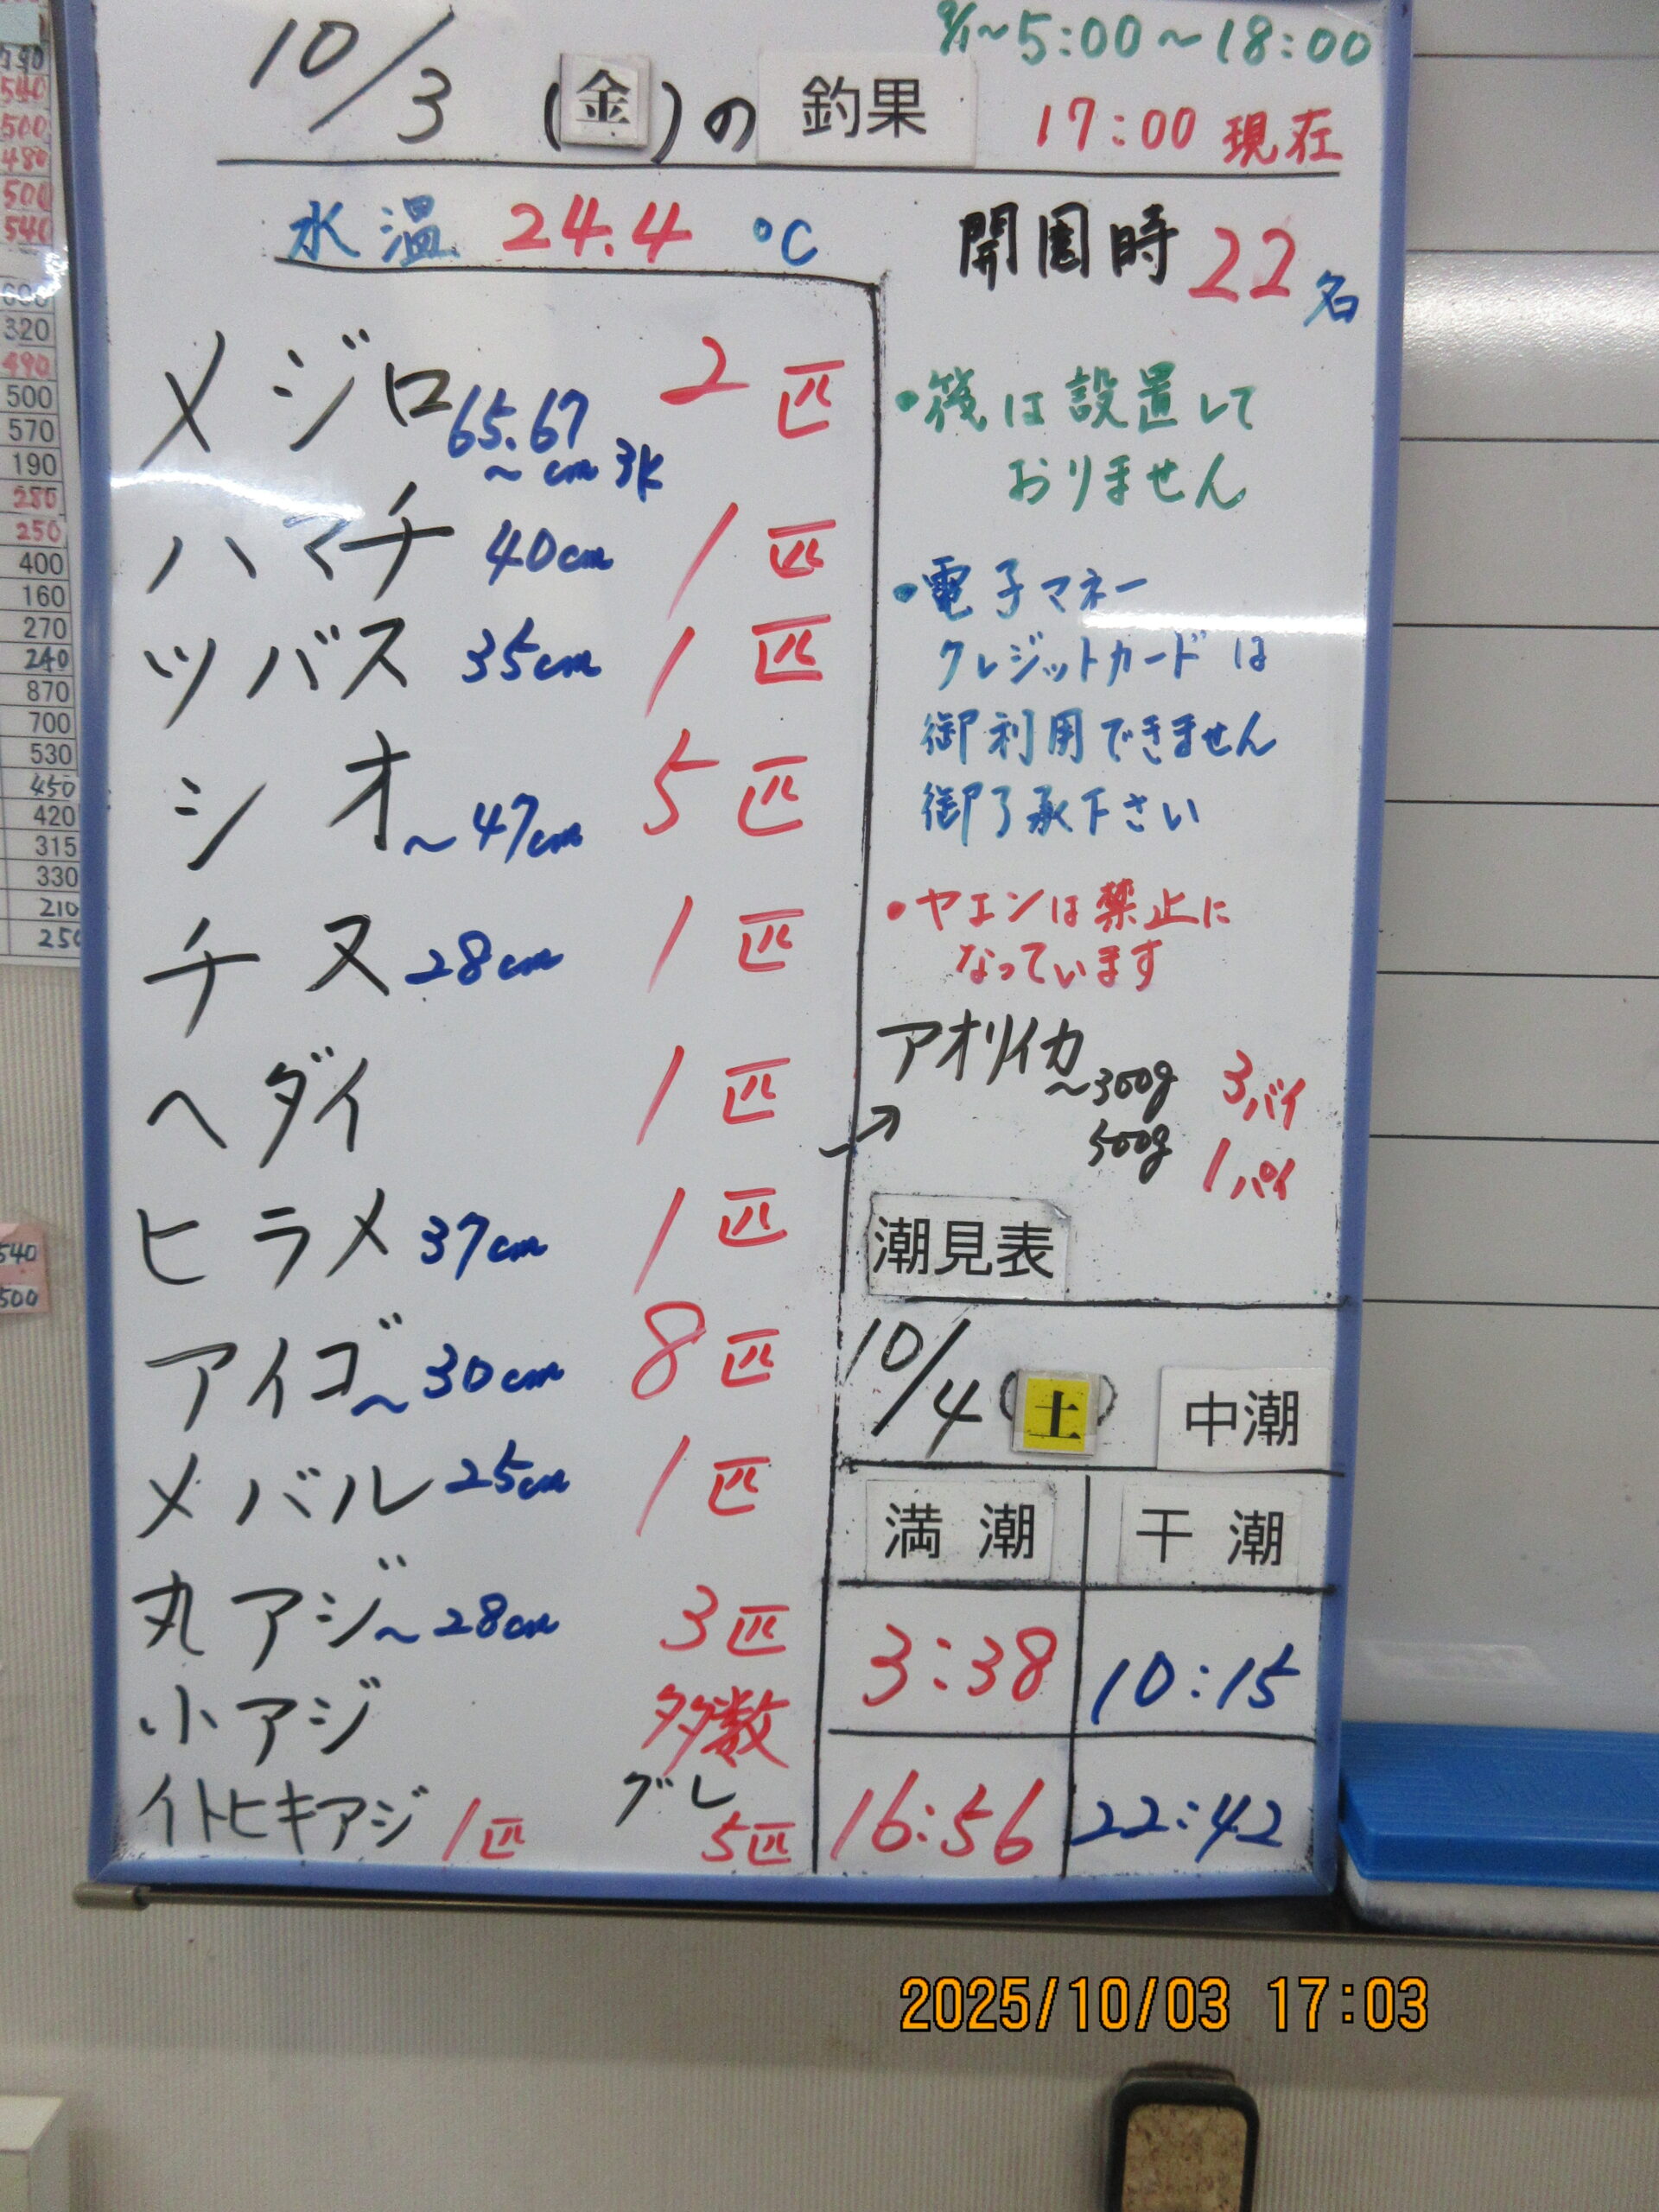 9/1~5:00~18:00
10/3 (金)の 釣果 17:00 現在
水温 24.4 ℃
開園時 22名
メジロ 65.67 2匹
~cm 3K
ハマチ 40cm 1匹
ツバス 35cm 1匹
シオ ~47cm 5匹
チヌ 28cm 1匹
ヘダイ 1匹
ヒラメ 37cm 1匹
アイゴ ~30cm 8匹
メバル 25cm 1匹
丸アジ ~28cm 3匹
小アジ 多数
イトヒキアジ 1匹 グレ 5匹
・筏は設置して
おりません
・電子マネー
クレジットカードは
御利用できません
御了承下さい
・ヤエンは禁止に
なっています
アオリイカ ~300g 3バイ
→ 500g 1パイ
潮見表
10/4 (土) 中潮
満潮 干潮
3:38 10:15
16:56 22:42
540
500
480
500
540
600
320
490
500
570
190
280
250
400
160
270
240
870
700
530
450
420
315
330
210
250
540
500
2025/10/03 17:03